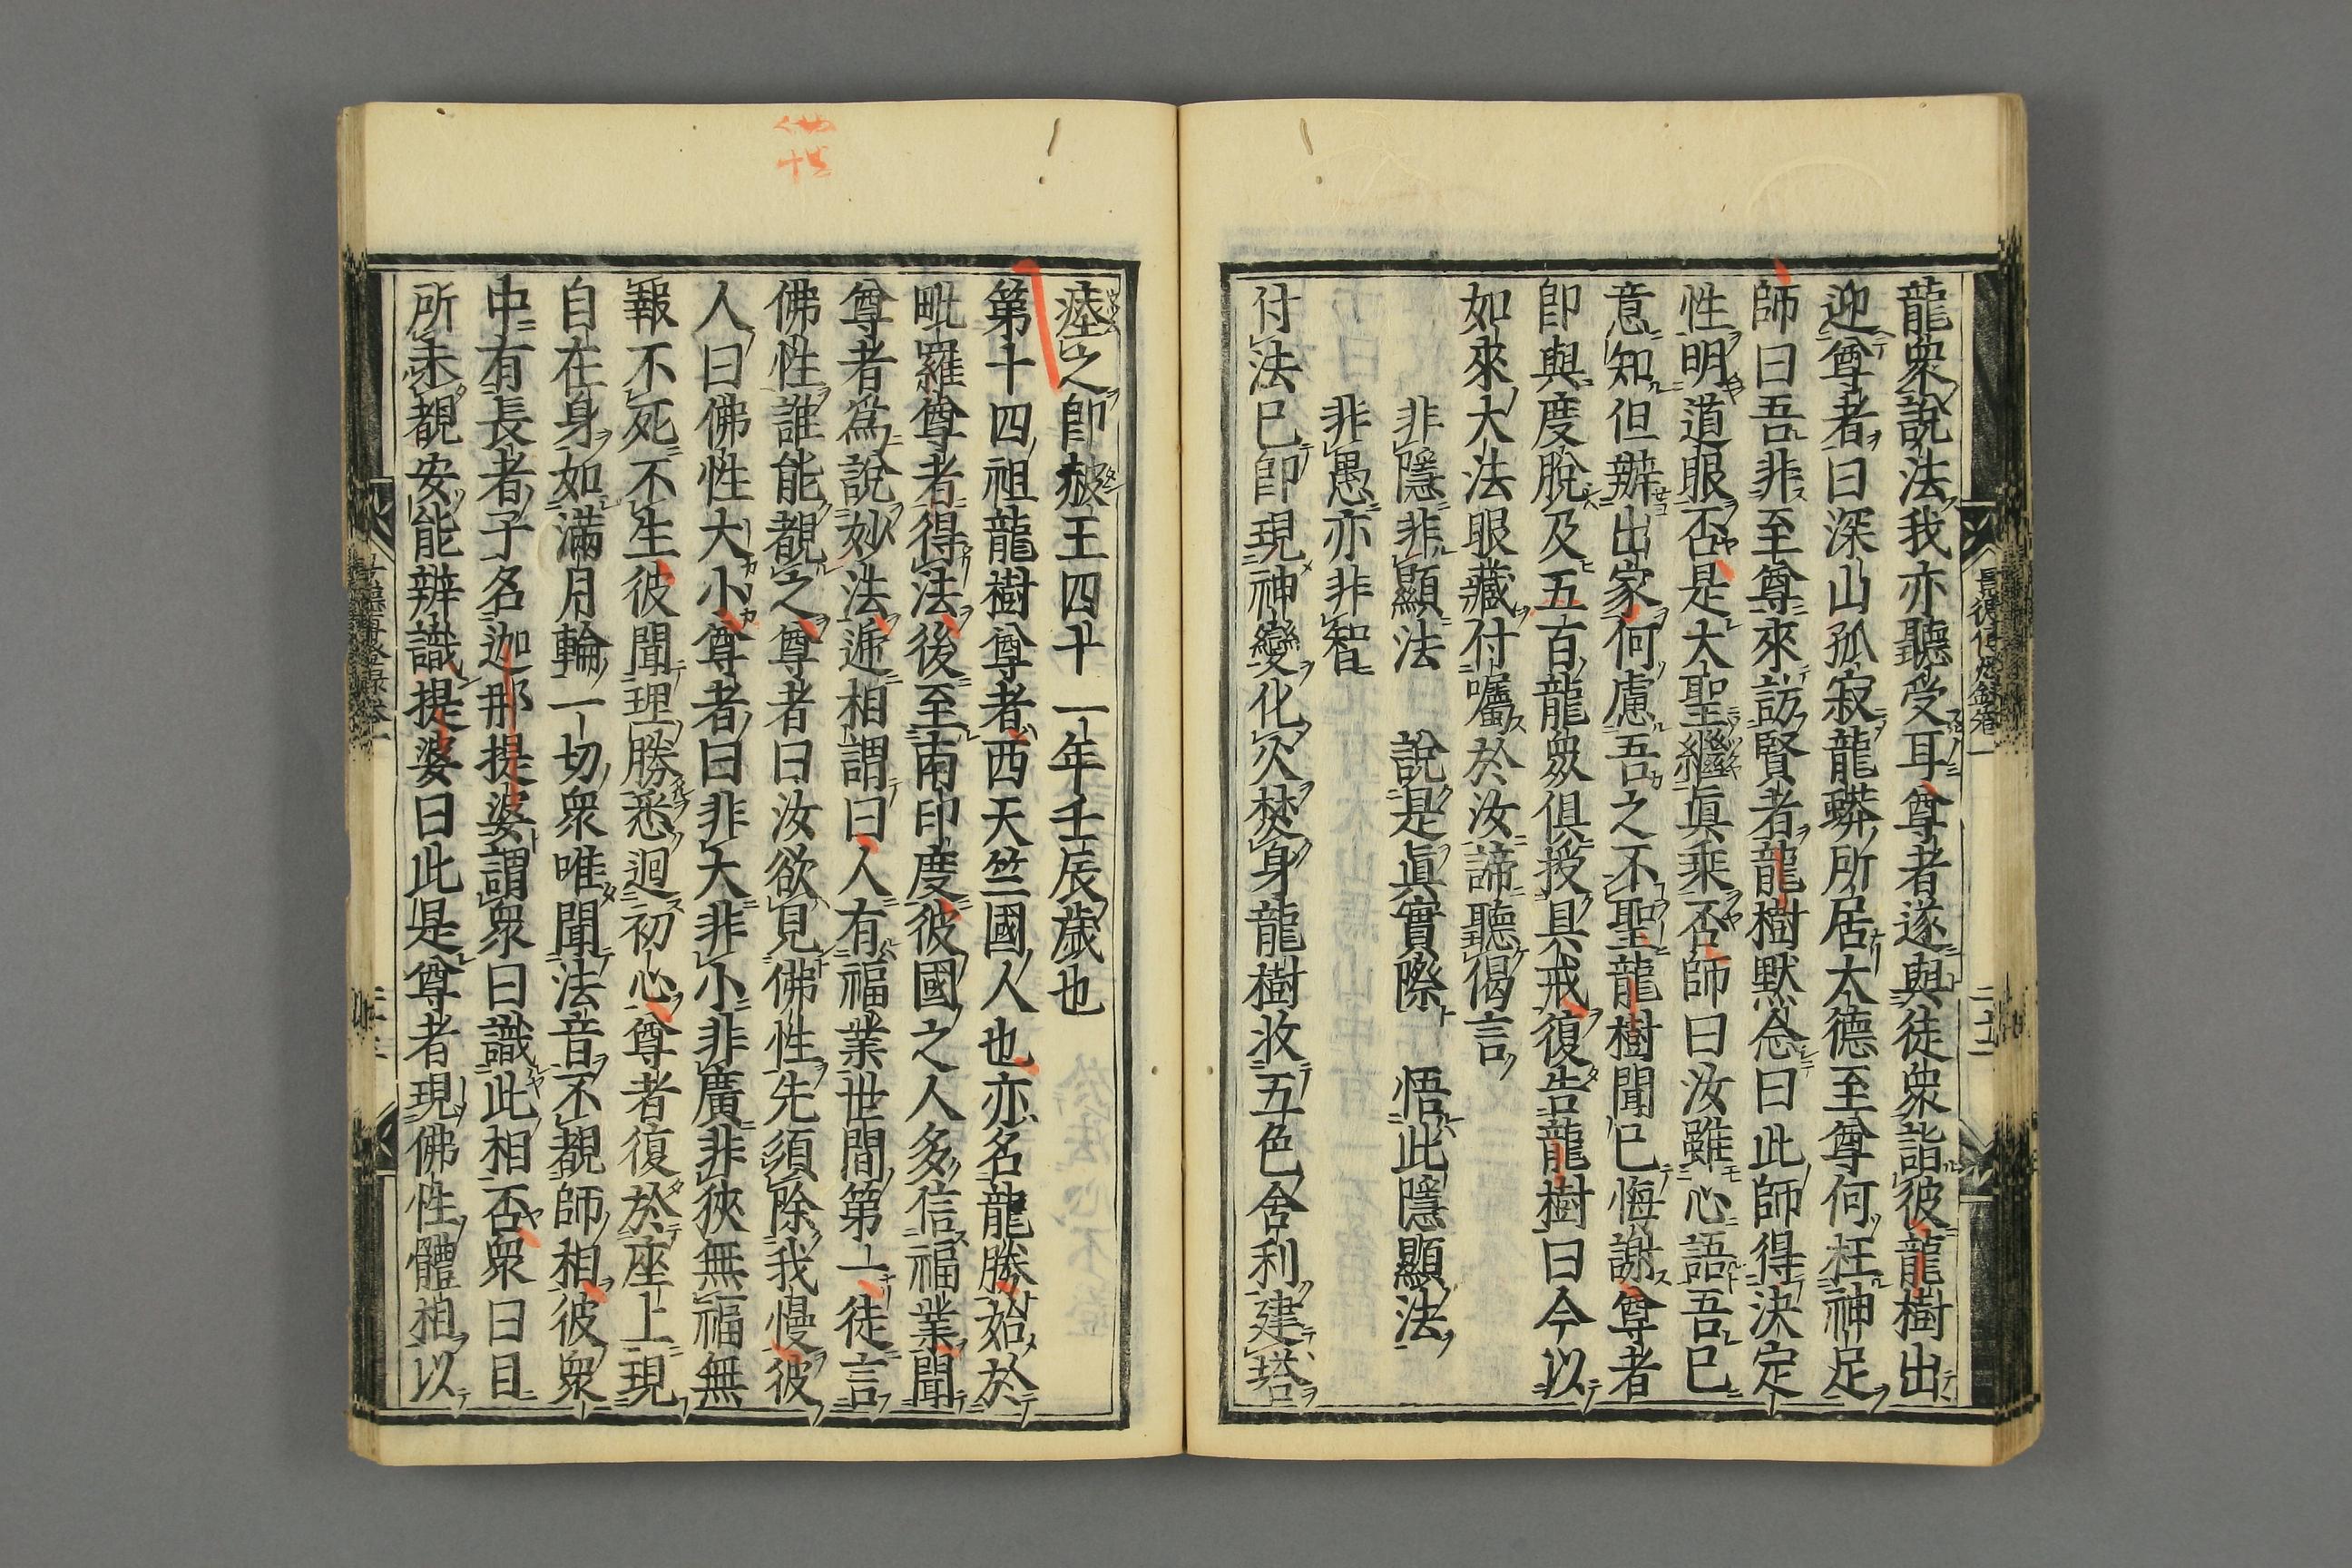 龍衆說法我亦聽受耳尊者遂與徒衆詣彼龍樹出
迎尊者曰深山孤寂龍蟒所居大德至尊何枉神足
師曰吾非至尊來訪賢者龍樹默念曰此師得決定
性明道眼否是大聖繼眞乘否師曰汝雖心語吾已
意知但辦出家何慮吾之不聖龍樹聞已悔謝尊者
卽與度脫及五百龍衆俱授具戒復告龍樹曰今以
如來大法眼藏付囑於汝諦聽偈言
非隱非顯法　說是眞實際　悟此隱顯法
非愚亦非智
付法已卽現神變化火焚身龍樹收五色舍利建塔
瘞之卽赧王四十一年壬辰歲也
第十四祖龍樹尊者西天竺國人也亦名龍勝始於
毗羅尊者得法後至南印度彼國之人多信福業聞
尊者爲說妙法遞相謂曰人有福業世間第一徒言
佛性誰能覩之尊者曰汝欲見佛性先須除我慢彼
人曰佛性大小尊者曰非大非小非廣非狹無福無
報不死不生彼聞理勝悉迴初心尊者復於座上現
自在身如滿月輪一切衆唯聞法音不覩師相彼衆
中有長者子名迦那提婆謂衆曰識此相否衆曰目
所未覩安能辨識提婆曰此是尊者現佛性體相以